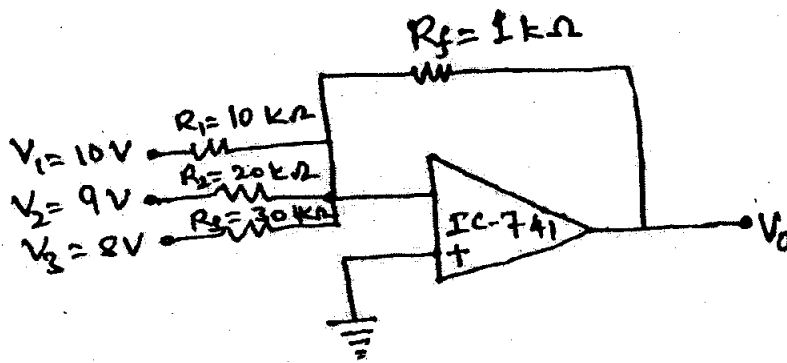 Rf = 1 kΩ
R1 = 10 kΩ
V1 = 10 V
R2 = 20 kΩ
V2 = 9 V
R3 = 30 kΩ
V3 = 8 V
IC-741
+
Vo